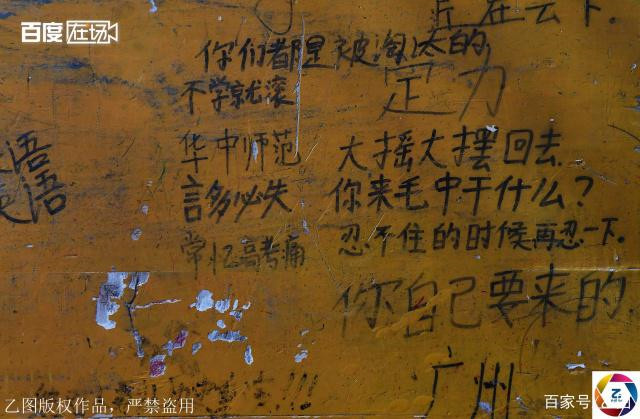 百度在场
你们都是被淘汰的
不学就滚
定力
华中师范
大摇大摆回去
言多必失
你来毛中干什么?
忍不住的时候再忍一下.
常忆高考痛
你自己要来的.
广州
乙图版权作品,严禁盗用
百家号